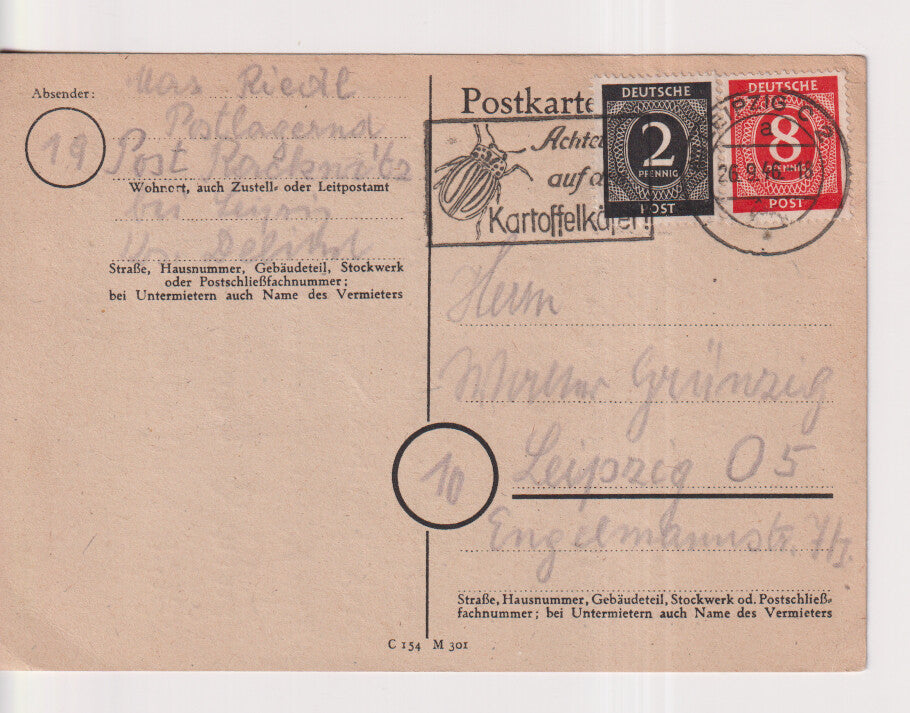 Absender:
Max Riedl
Postlagernd
19 Post
Wohnort, auch Zustell- oder Leitpostamt
bei
Kr. Delitzsch
Straße, Hausnummer, Gebäudeteil, Stockwerk
oder Postschließfachnummer;
bei Untermietern auch Name des Vermieters
Postkarte
Achtet
auf
Kartoffelkäfer!
DEUTSCHE
2
PFENNIG
POST
DEUTSCHE
8
PFENNIG
POST
LEIPZIG C 2
a
26.9.46
Herrn
Walter Grünzig
10
Leipzig O 5
Engelmannstr. 7/I.
Straße, Hausnummer, Gebäudeteil, Stockwerk od. Postschließ-
fachnummer; bei Untermietern auch Name des Vermieters
C 154 M 301